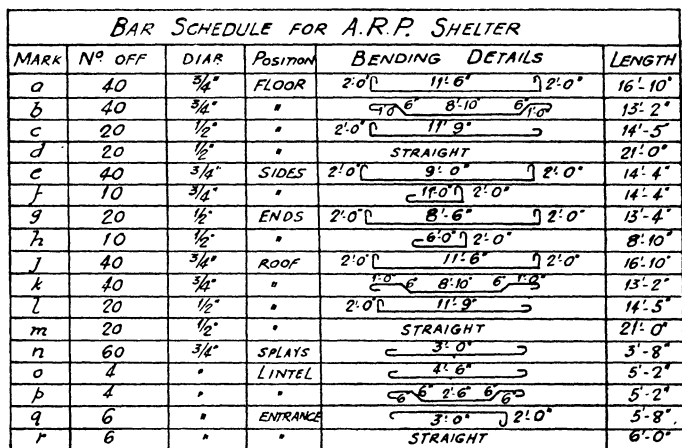 BAR SCHEDULE FOR A.R.P. SHELTER
MARK Nº OFF DIAR POSITION BENDING DETAILS LENGTH
a 40 3/4" FLOOR 2'-0" 11'-6" 2'-0" 16'-10"
b 40 3/4" " 1'-0" 6" 8'-10" 6" 1'-0" 13'-2"
c 20 1/2" " 2'-0" 11'-9" 14'-5"
d 20 1/2" " STRAIGHT 21'-0"
e 40 3/4" SIDES 2'-0" 9'-0" 2'-0" 14'-4"
f 10 3/4" " 11'-0" 2'-0" 14'-4"
g 20 1/2" ENDS 2'-0" 8'-6" 2'-0" 13'-4"
h 10 1/2" " 6'-0" 2'-0" 8'-10"
J 40 3/4" ROOF 2'-0" 11'-6" 2'-0" 16'-10"
k 40 3/4" " 1'-0" 6" 8'-10" 6" 1'-0" 13'-2"
l 20 1/2" " 2'-0" 11'-9" 14'-5"
m 20 1/2" " STRAIGHT 21'-0"
n 60 3/4" SPLAYS 3'-0" 3'-8"
o 4 " LINTEL 4'-6" 5'-2"
p 4 " " 6" 6" 2'-6" 6" 6" 5'-2"
q 6 " ENTRANCE 3'-0" 2'-0" 5'-8"
r 6 " " STRAIGHT 6'-0"